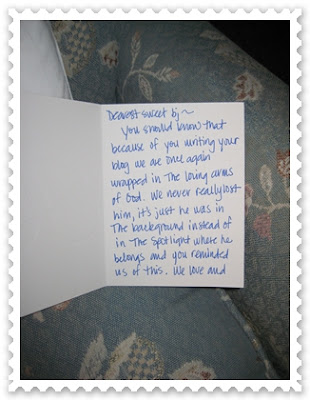 Dearest sweet bj~
You should know that
because of you writing your
blog we are once again
wrapped in The loving arms
of God. We never really lost
him, it's just he was in
The background instead of
in The Spotlight where he
belongs and you reminded
us of this. We love and